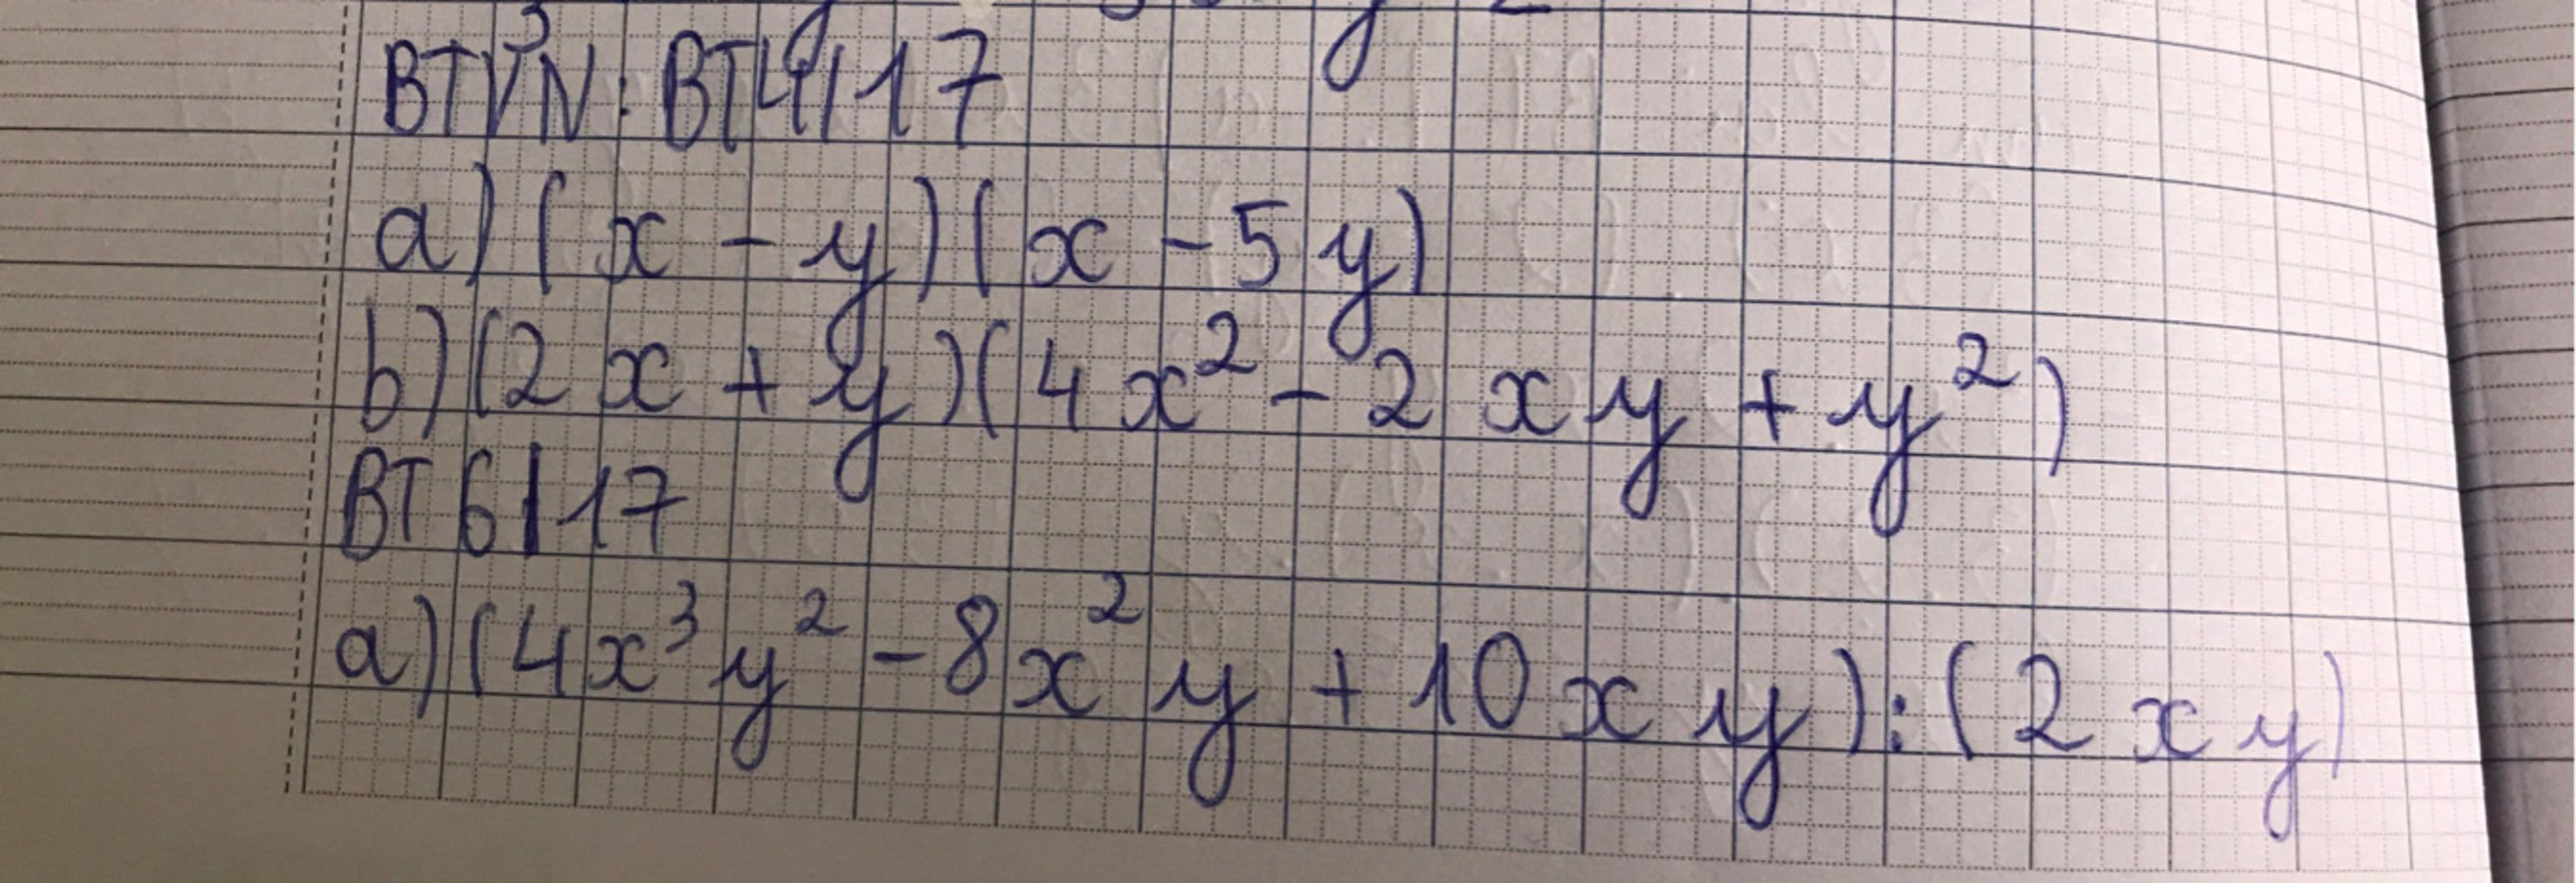 BTVN: BT4/17
a) (x - y)(x - 5y)
b) (2x + y)(4x² - 2xy + y²)
BT 6/17
a) (4x³y² - 8x²y + 10xy) : (2xy)